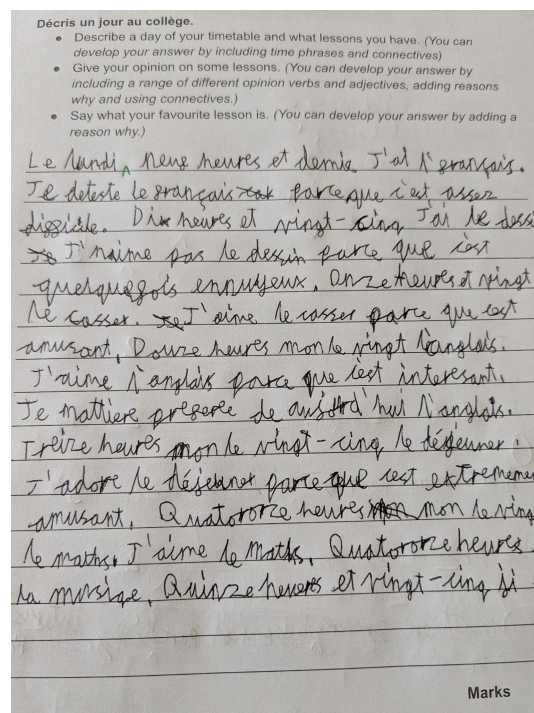 Décris un jour au collège.
• Describe a day of your timetable and what lessons you have. (You can
develop your answer by including time phrases and connectives)
• Give your opinion on some lessons. (You can develop your answer by
including a range of different opinion verbs and adjectives, adding reasons
why and using connectives.)
• Say what your favourite lesson is. (You can develop your answer by adding a
reason why.)
Le lundi, neuf heures et demie J'ai l'français.
Je deteste le français parce que c'est asser
difficile. Dix heures et vingt-cinq J'ai le dessi
J'n'aime pas le dessin parce que c'est
quelquefois ennuyeux. Onze heures et vingt
le casser. J'aime le casser parce que c'est
amusant, Douze heures mon le vingt l'anglais.
J'aime l'anglais parce que c'est interesant.
Je mattiere preferee de l'anglais.
Treize heures mon le vingt-cinq le déjeuner.
J'adore le déjeuner parce que c'est extrememe
amusant, Quatororze heures mon le ving
le maths. J'aime le maths, Quatororze heures
la musique, Quinze heures et vingt-cinq ji
Marks